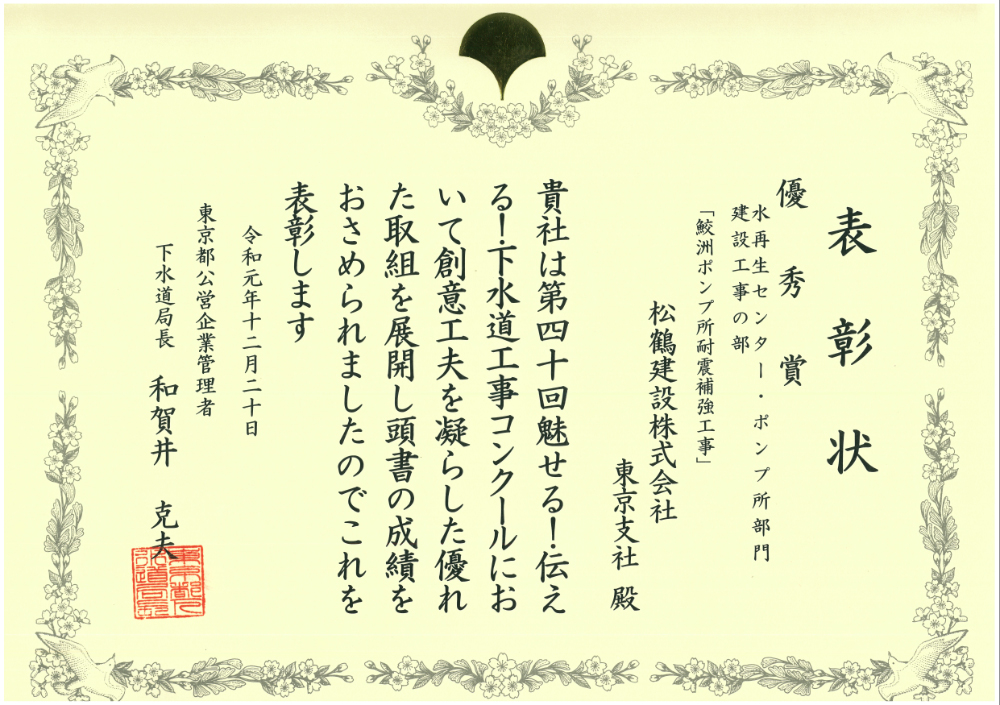 表彰状
優秀賞
水再生センター・ポンプ所部門
建設工事の部
「鮫洲ポンプ所耐震補強工事」
松鶴建設株式会社
東京支社 殿
貴社は第四十回魅せる!伝え
る!下水道工事コンクールにお
いて創意工夫を凝らした優れ
た取組を展開し頭書の成績を
おさめられましたのでこれを
表彰します
令和元年十二月二十日
東京都公営企業管理者
下水道局長 和賀井 克夫